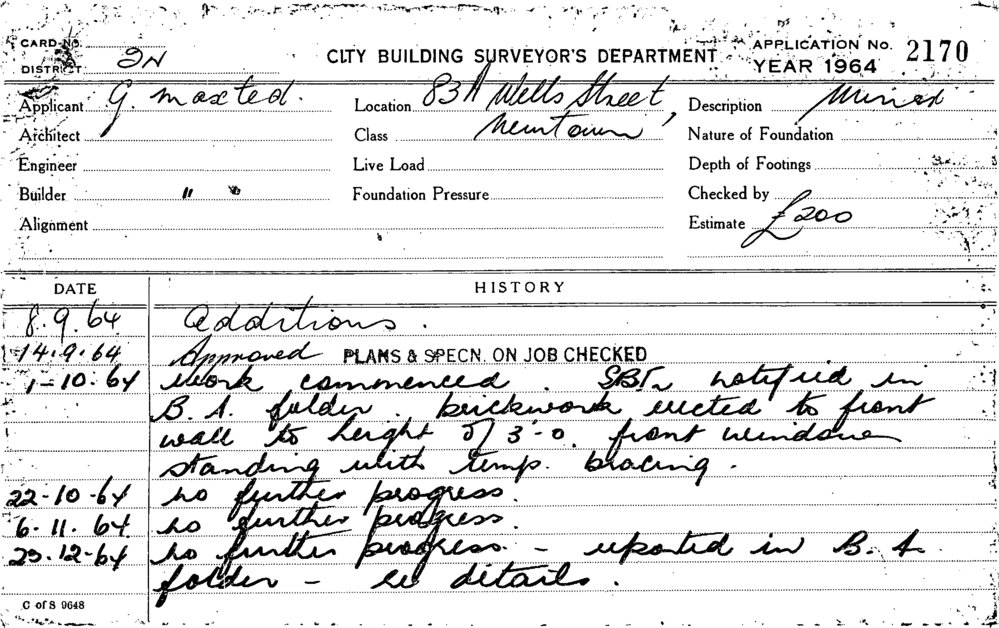 CARD No.
DISTRICT 2N
CITY BUILDING SURVEYOR'S DEPARTMENT
APPLICATION No. 2170
YEAR 1964
Applicant G. Maxted.
Location 83A Wells Street,
Description Minor
Architect
Class Newtown
Nature of Foundation
Engineer
Live Load
Depth of Footings
Builder " "
Foundation Pressure
Checked by
Alignment
Estimate £200
DATE HISTORY
8.9.64 Additions.
14.9.64 Approved PLANS & SPECN. ON JOB CHECKED
1-10.64 Work commenced. notified in
B.A. folder. brickwork erected to front
wall to height of 3'-0. front window
standing with temp. bracing.
22-10-64 no further progress.
6.11.64. no further progress.
23.12-64 no further progress. - reported in B.A.
folder - re details.
C of S 9648